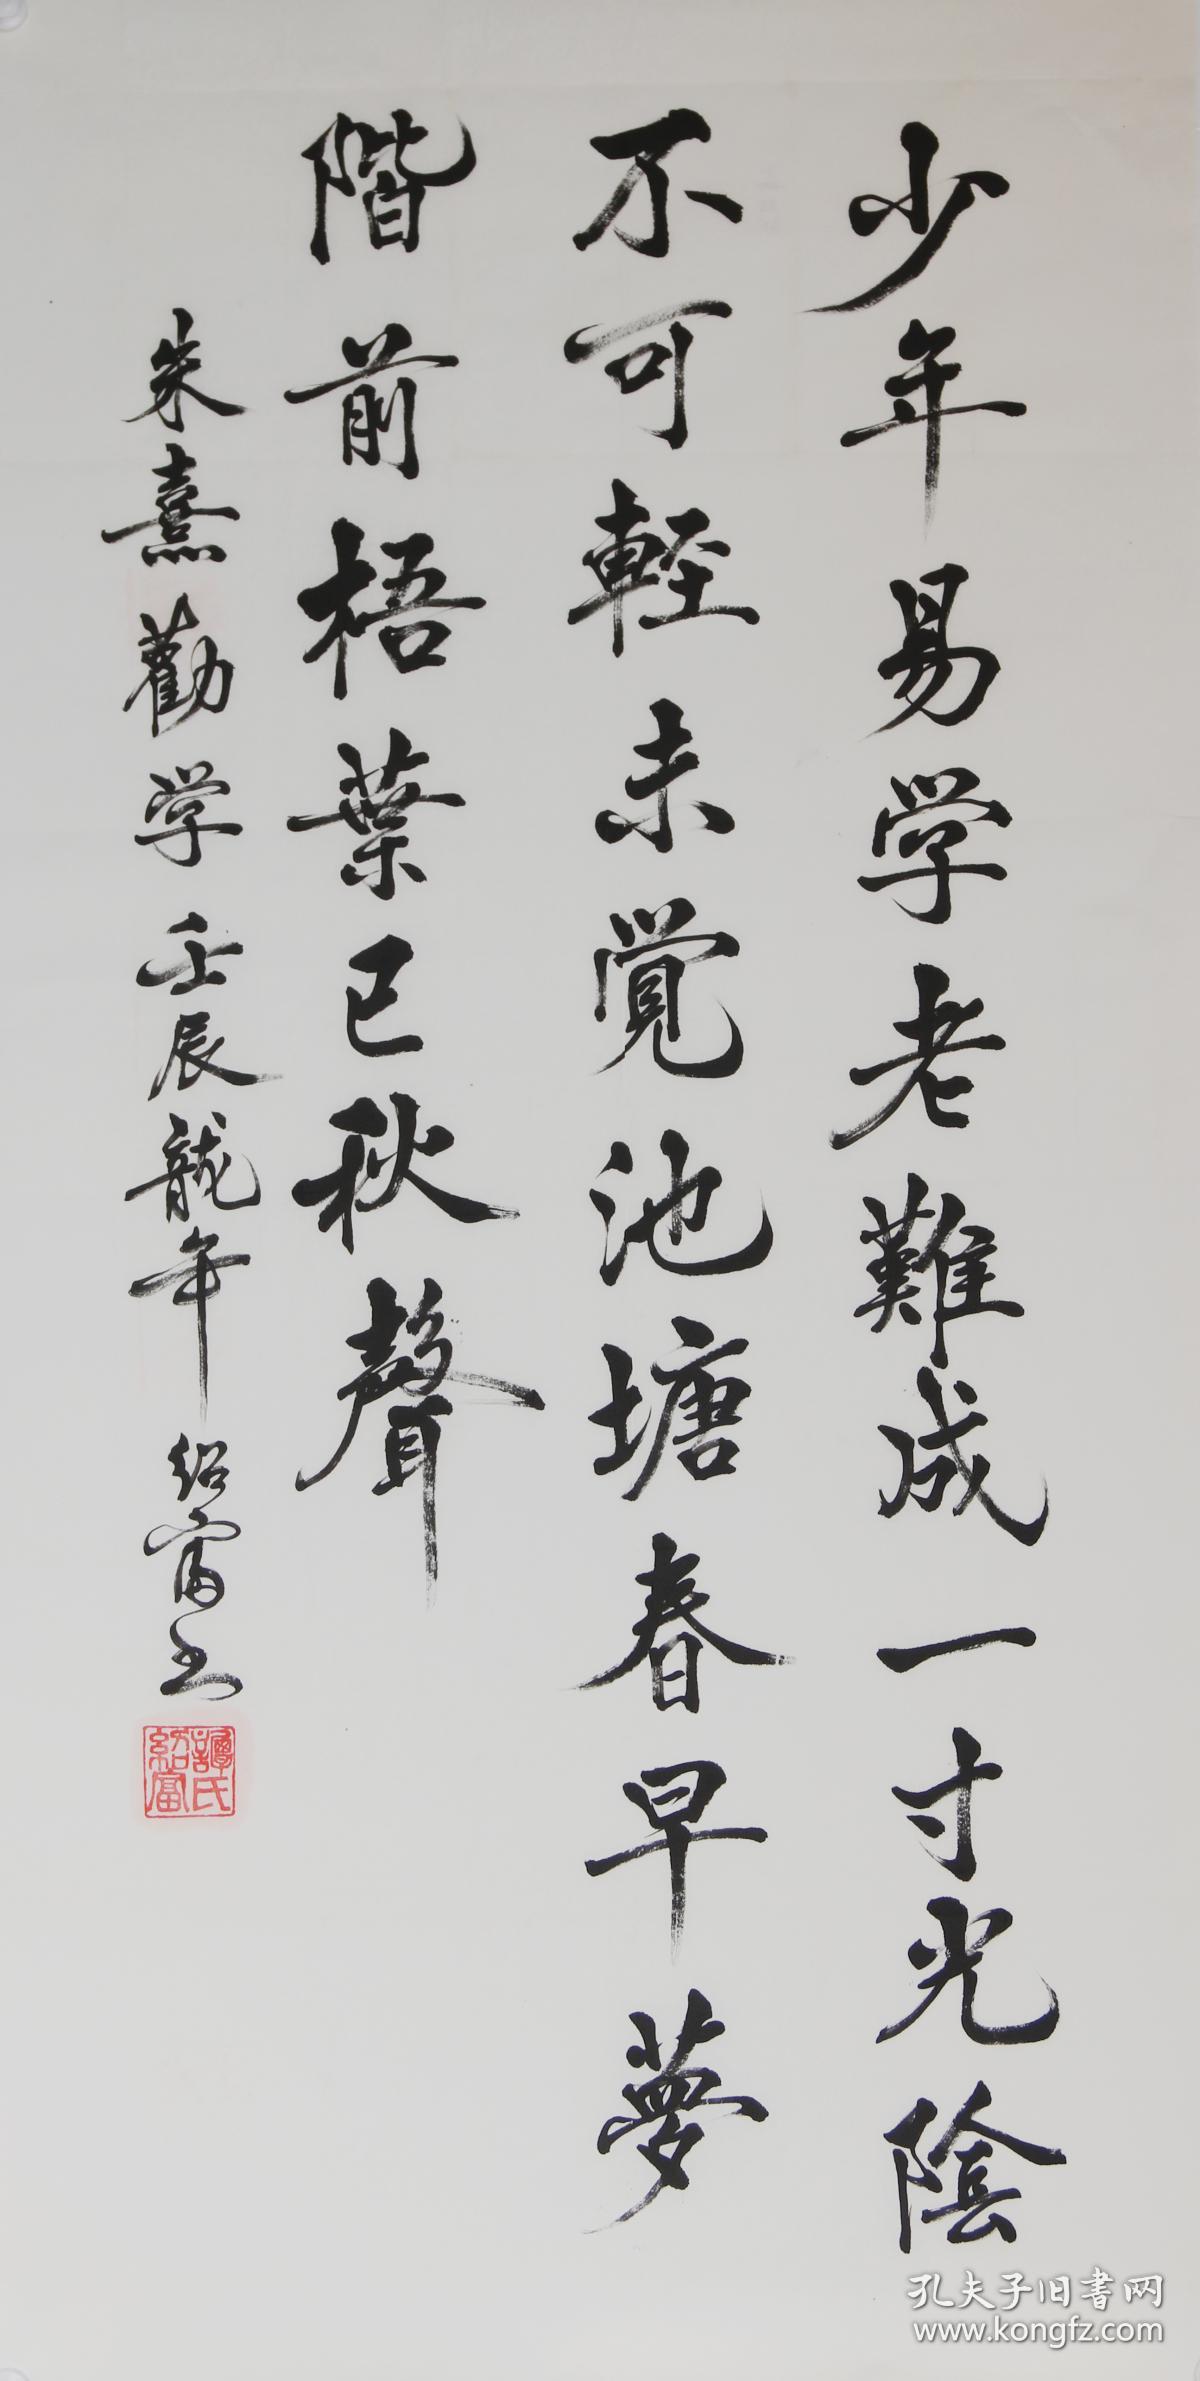 少年易学老難成一寸光陰
不可輕未覚池塘春早夢
階前梧葉已秋聲
朱熹勸学壬辰龍年绍富书
譚氏紹富
孔夫子旧書网
www.kongfz.com